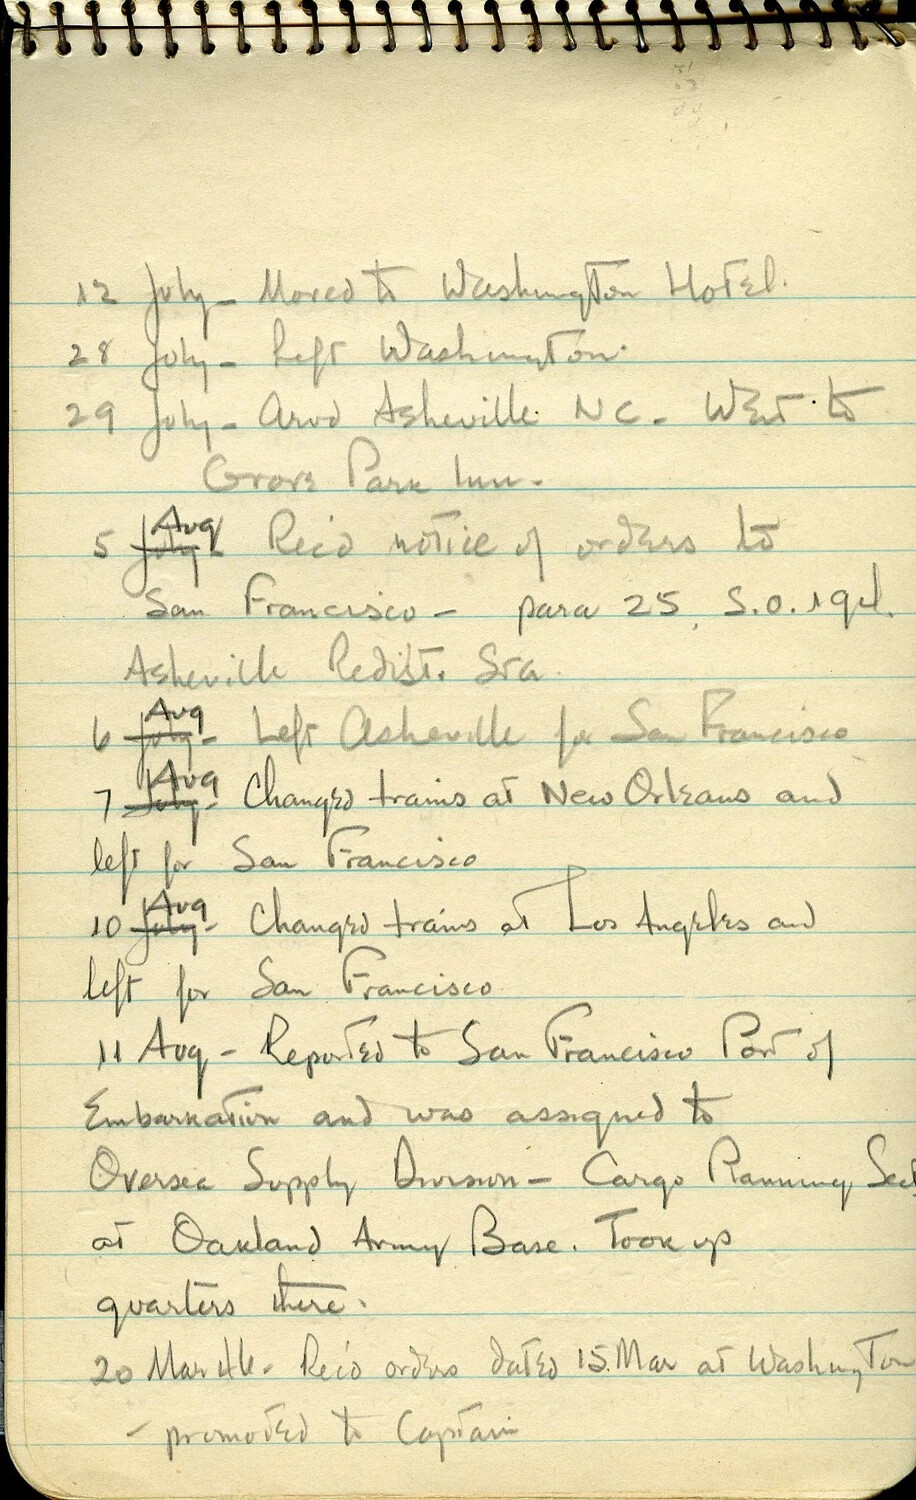 12 July - Moved to Washington Hotel.
28 July - Left Washington.
29 July - Arvd Asheville NC - Went to
Grove Park Inn.
Aug
5 July - Rec'd notice of orders to
San Francisco - para 25, S.O. 194
Asheville Redist. Sta.
Aug
6 July - Left Asheville for San Francisco
Aug
7 July - Changed trains at New Orleans and
left for San Francisco
Aug
10 July - Changed trains at Los Angeles and
left for San Francisco
11 Aug - Reported to San Francisco Port of
Embarkation and was assigned to
Oversea Supply Division - Cargo Planning Sect
at Oakland Army Base. Took up
quarters there.
20 Mar 46 - Rec'd orders dated 15 Mar at Washington
- promoted to Captain